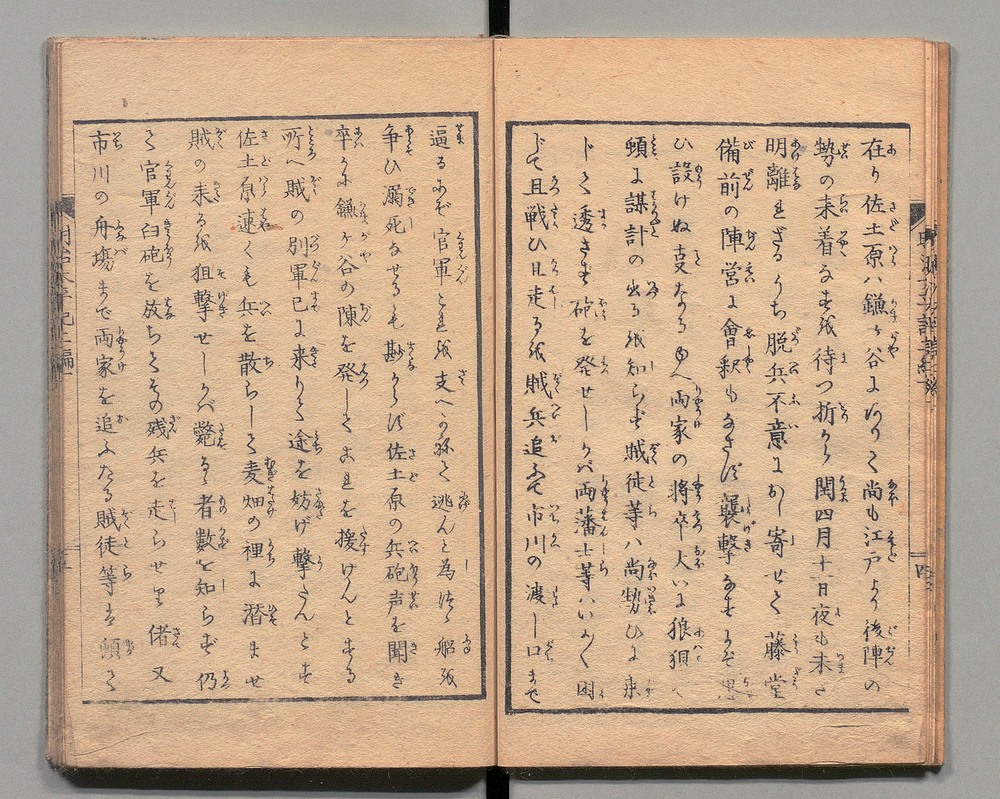 在り佐土原ハ鎌ヶ谷にありて尚も江戸より後陣の
勢の来着なすを待つ折から閏四月十日夜も未だ
明離れざるうち脱兵不意におし寄せて藤堂
備前の陣営に會釈もなさず襲撃なすにぞ思
ひ設けぬ事なるゆへ両家の将卒大いに狼狽へ
頓に謀計の出るを知らず賊徒等ハ尚勢ひに乗
じて透さず砲を発せしかバ両藩士等ハいかく困
じて且戦ひ且走るを賊兵追ふて市川の渡し口まで
逼るにぞ官軍これを支へかねて逃んと為つゝ船を
争ひ溺死なせるも尠からず佐土原の兵砲声を聞き
卒かに鎌ヶ谷の陳を発してこれを援けんとする
所へ賊の別軍已に来りて途を妨げ撃たんとす
佐土原速くも兵を散らして麦畑の裡に潜ませ
賊の来るを狙撃せしかべ斃るゝ者數を知らず仍
て官軍臼砲を放ちてその残兵を走らせり偖又
市川の舟塲まで両家を追ふたる賊徒等は頓て